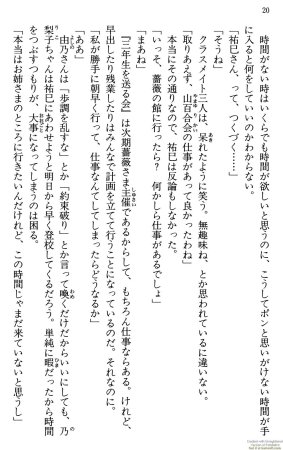 20
時間がない時はいくらでも時間が欲しいと思うのに、こうしてポンと思いがけない時間が手
に入ると何をしていいのかわからない。
「祐巳さん、って、つくづく……」
「そうね」
クラスメイト三人は、呆れたように笑う。無趣味ね、とか思われているに違いない。
「取りあえず、山百合会の仕事があって良かったわね」
本当にその通りなので、祐巳は反論もしなかった。
「いっそ、薔薇の館に行ったら？　何かしら仕事があるでしょ」
「まあね」
『三年生を送る会』は次期薔薇さま主催であるからして、もちろん仕事ならある。けれど、
早出したり残業したりはみんなで計画を立てて行うことになっているのだ。それなのに。
「私が勝手に朝早く行って、仕事なんてしてしまったらどうなるか」
「ああ」
由乃さんは「歩調を乱すな」とか「約束破り」とか言って喚くだけだからいいにしても、乃
梨子ちゃんは祐巳にあわせようと明日から早く登校してくるだろう。単純に暇だったから時間
をつぶすつもりが、大事になってしまうのは困る。
「本当はお姉さまのところに行きたいんだけれど、この時間じゃまだ来ていないと思うし」